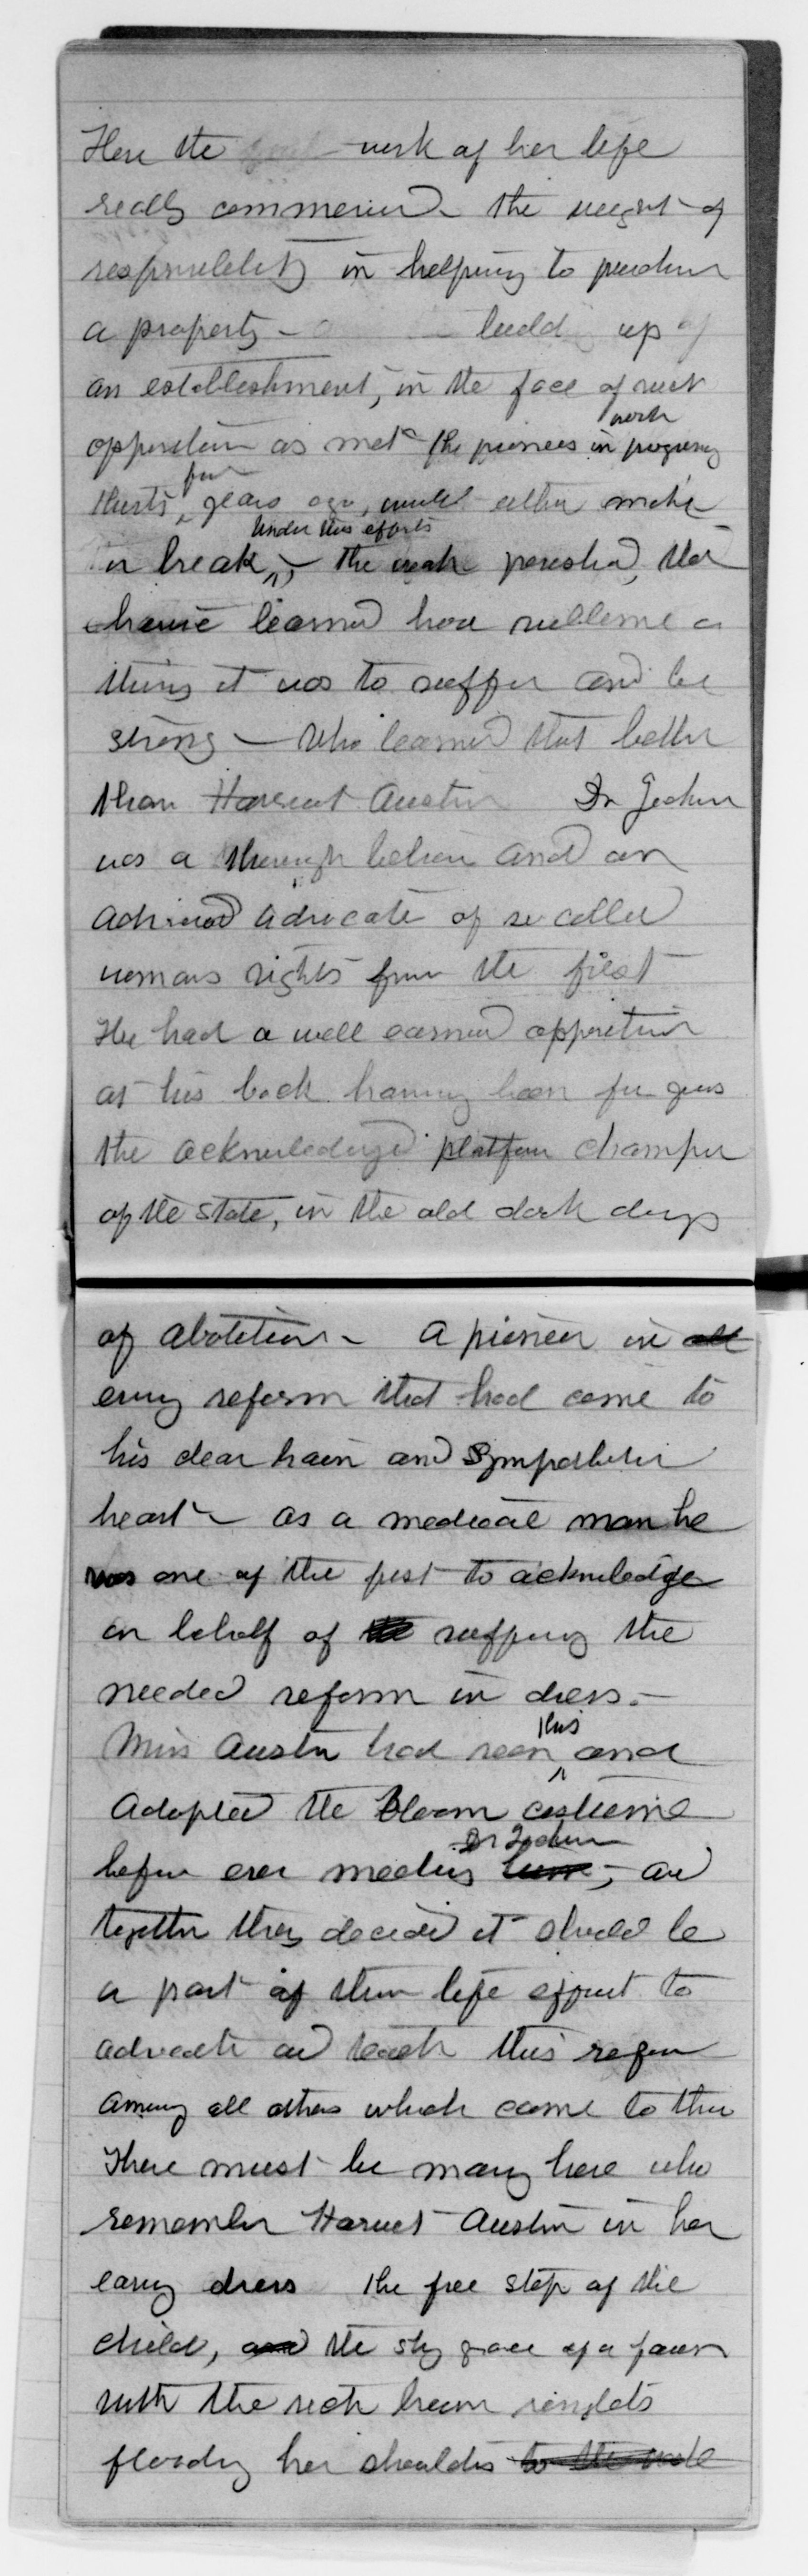 Here the work of her life
really commenced - the weight of
responsibility in helping to purchase
a property - build up of
an establishment, in the face of such
opposition as met the pioneers in
work
thirty years ago, would either make
four
or break - the weak perished, the
Under this efforts
learned how sublime a
thing it was to suffer and be
strong - who learned that better
than Harriet Austin Dr Jackson
was a through believer and an
advanced advocate of so called
womans rights from the first
He had a well earned opposition
at his back having been for years
the acknowledged platform champion
of the state, in the old dark days
of abolition - A pioneer in all
every reform that had come to
his clear brain and sympathetic
heart - as a medical man he
was one of the first to acknowledge
on behalf of suffering the
needed reform in dress. -
Miss Austin had seen this and
adopted the Bloom costume
before ever meeting him, and
Dr Jackson
together they decided it should be
a part of their life effort to
advocate and teach this reform
among all others which came to them
There must be many here who
remember Harriet Austin in her
early dress the free step of the
child, and the shy grace of a fawn
with the rich brown ringlets
flooding her shoulders to the